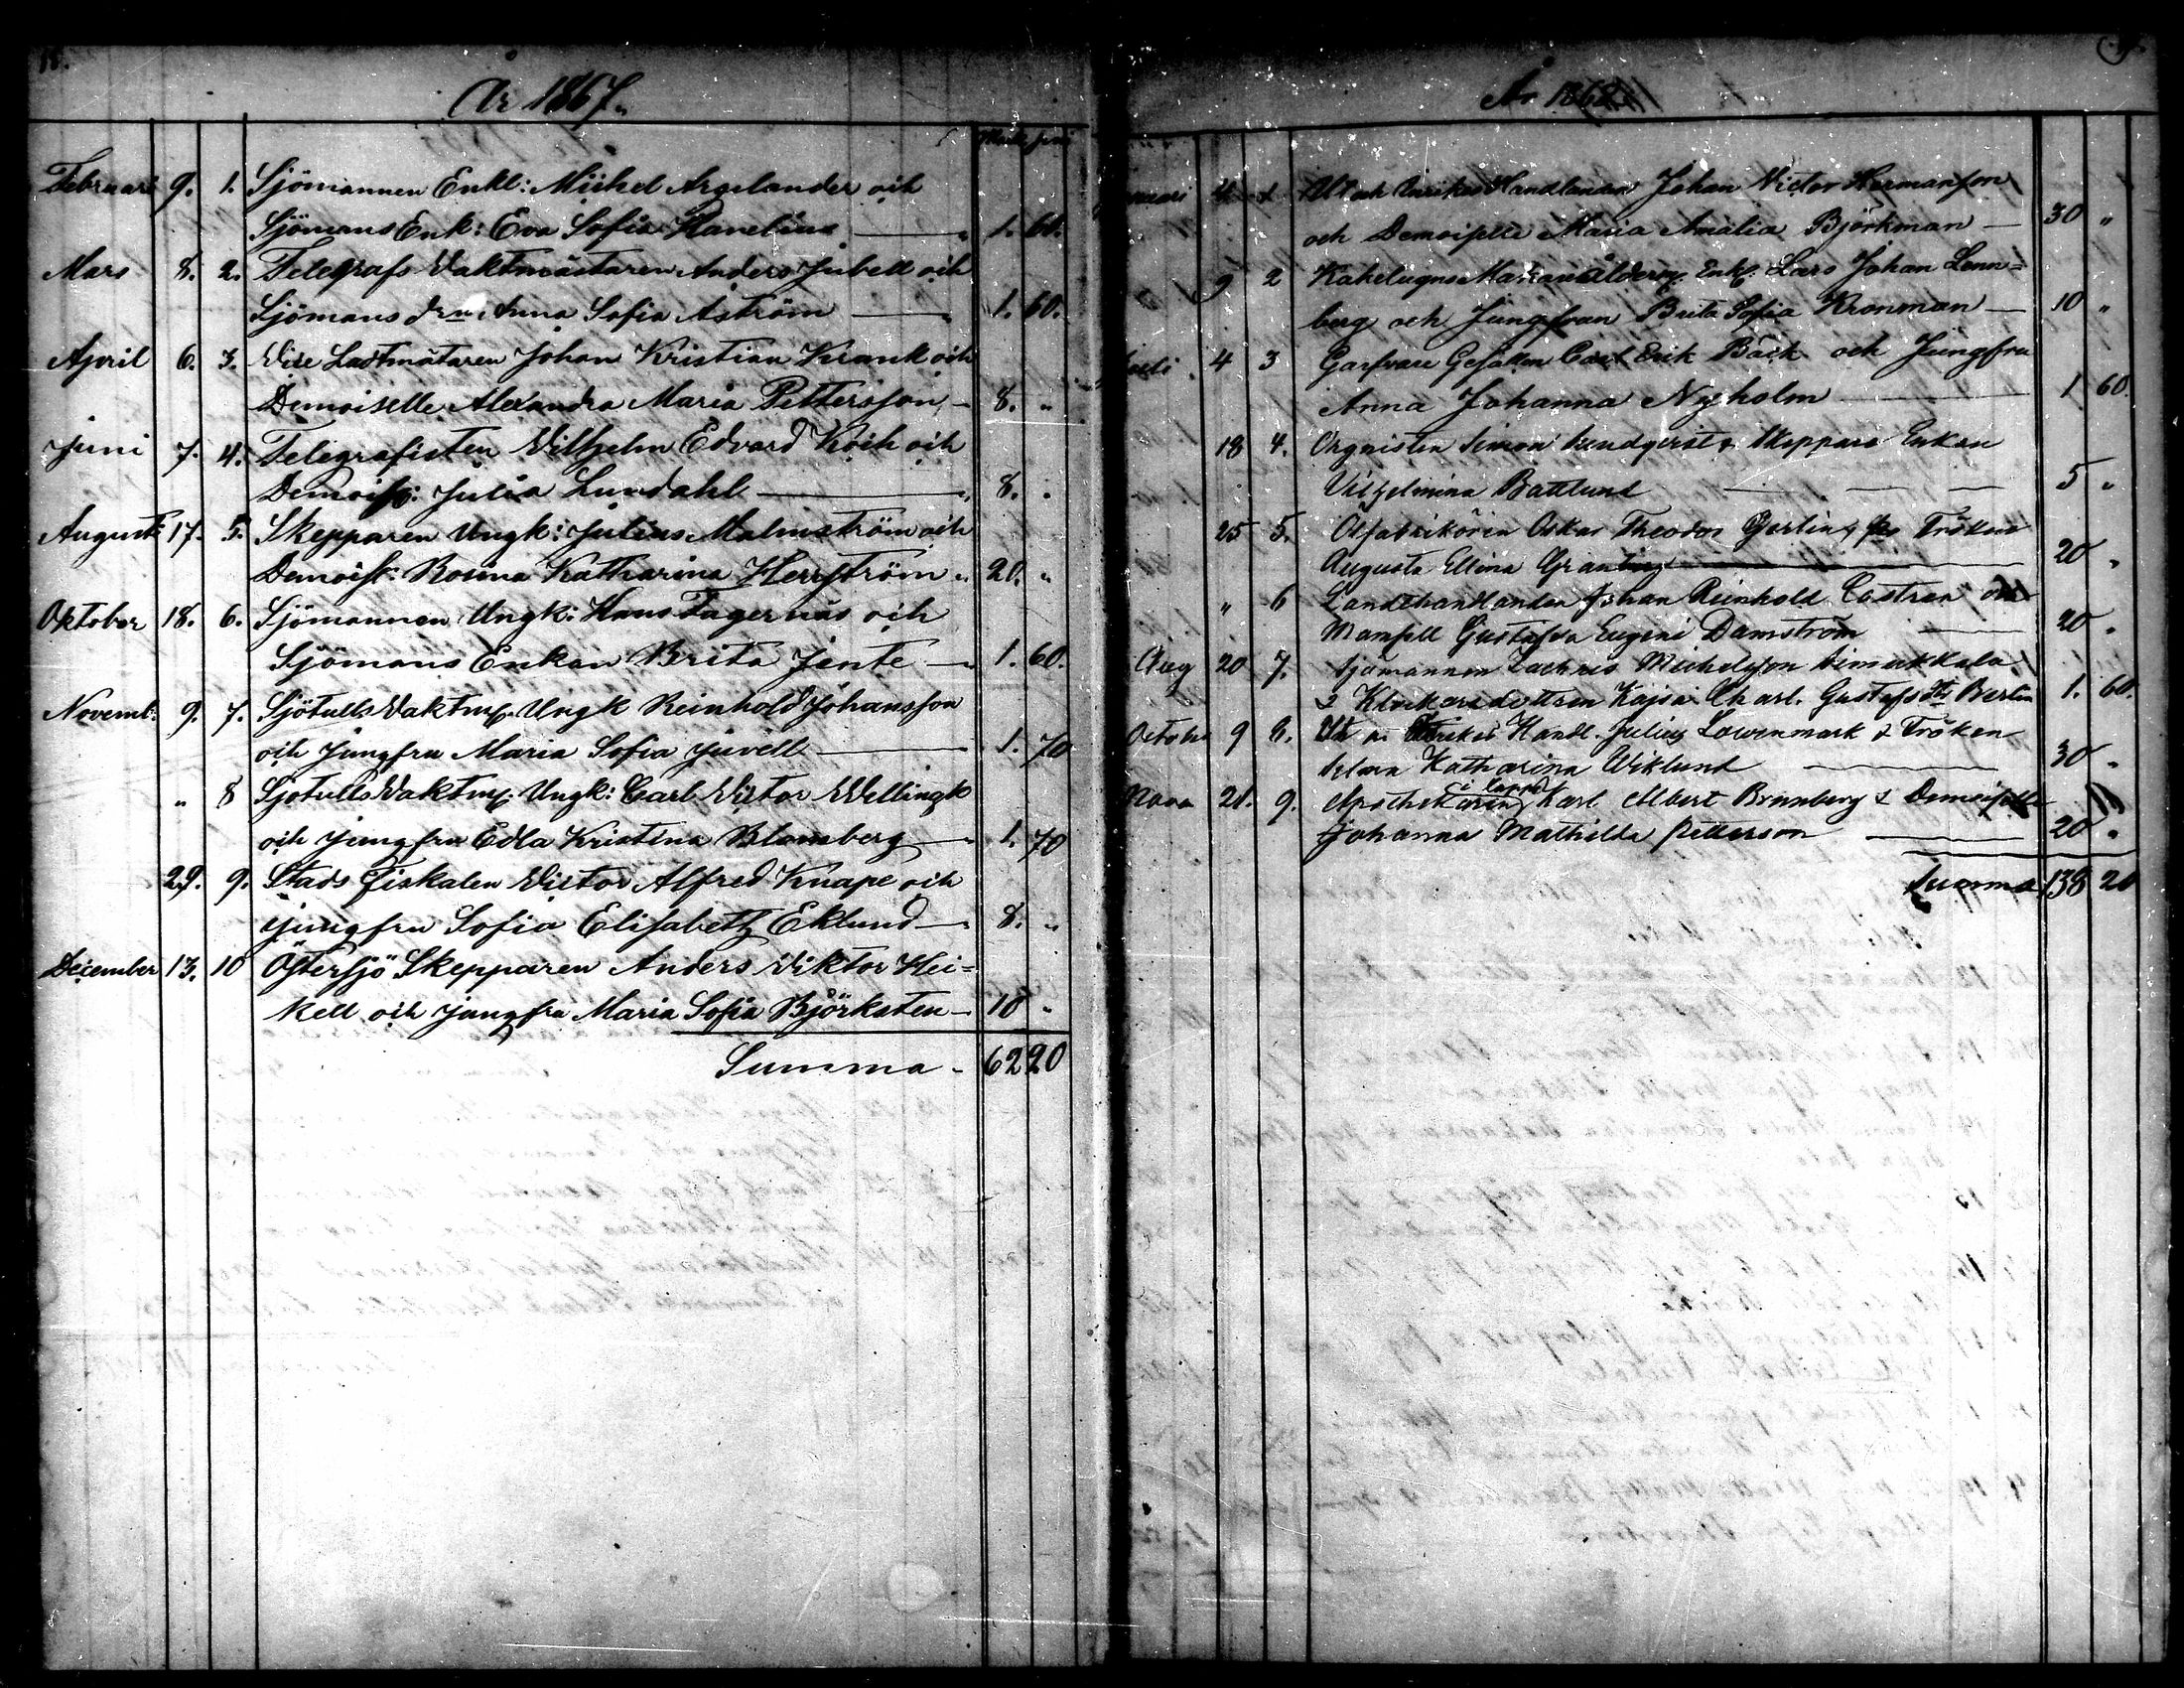 År 1867.
Mark pni
Februari 9. 1. Sjömannen Enkl: Michel Argelander och
Sjömans Enk: Eva Sofia Hanelius 1. 60.
Mars 8. 2. Telegrafs Vaktmästaren Anders Jubell och
Sjömans Anna Sofia Åström 1. 60.
April 6. 3. Vise Lastmätaren Johan Kristian Krank och
Demoiselle Alexandra Maria Pettersson 8. "
Juni 7. 4. Telegrafisten Vilhelm Edvard Koch och
Demoiss: Julia Lundahl 8. "
Augusti 17. 5. Skepparen Ungk: Julius Malmström och
Demoiss: Rosina Katharina Herrström 20. "
Oktober 18. 6. Sjömannen Ungk: Hans Fagernäs och
Sjömans Enkan Brita Jente 1. 60.
Novemb: 9. 7. Sjötulls Vaktm. Ungk Reinhold Johansson
och Jungfru Maria Sofia Juvell 1. 70
" 8 Sjötulls Vaktm. Ungk: Carl Victor Wellingk
och Jungfru Edla Kristina Blomberg 1. 70
29. 9. Stads Fiskalen Victor Alfred Knape och
Jungfru Sofia Elisabeth Eklund 8. "
December 13. 10 Östersjö Skepparen Anders Viktor Hei=
kell och Jungfru Maria Sofia Björksten 10 "
Summa - 62 20
År 1868
4 1 Ut och Inrikes Handlanden Johan Victor Hermansson
och Demoiselle Maria Amalia Björkman 30 "
9 2 Kakelugns Makare Ålderm. Enkl. Lars Johan Lenn=
berg och Jungfrun Brita Sofia Kronman 10 "
4 3 Garfvare Gesällen Carl Erik Bäck och Jungfru
Anna Johanna Nyholm 1 60.
18 4. Orgnisten Simon Lundqvist & Skeppare Enkan
Vilhelmina Battlund 5 "
25 5. Oskar Theodor Gerlin & Fröken
Augusta Elina 20 "
" 6 Landthandlanden Johan Reinhold Castren och
Mamsell Gustafva Eugeni Damström 20 "
Aug 20 7. Sjömannen Zachris Michelsson Simukkala
& Kajsa Charl. Gustafs dr Berlin 1. 60.
October 9 8. Ut o Inrikes Handl. Julius Löwenmark & Fröken
Selma Katharina Wiklund 30 "
Nove 21. 9. Apothekaren Karl Albert Brunberg & Demoiselle
Johanna Mathilda Petterson 20 "
Summa 138 20